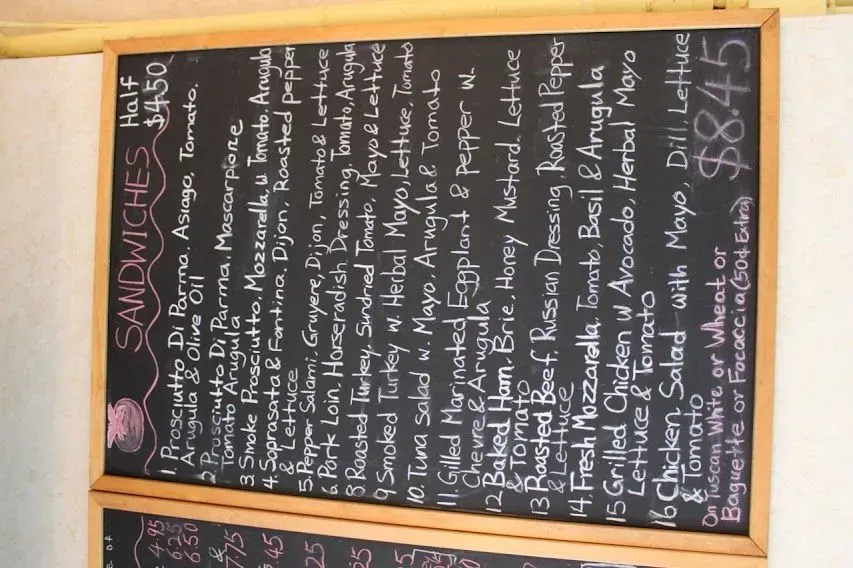 SANDWICHES Half
$4.50
1. Prosciutto Di Parma, Asiago, Tomato,
Arugula & Olive Oil
2. Prosciutto Di Parma, Mascarpone
Tomato Arugula
3 Smoke Prosciutto, Mozzarella, w. Tomato, Arugula
4. Soprasata & Fontina, Dijon, Roasted pepper
& Lettuce
5. Pepper Salami, Gruyere, Dijon, Tomato & Lettuce
6. Pork Loin, Horseradish Dressing, Tomato, Arugula
8 Roasted Turkey, Sundried Tomato, Mayo & Lettuce
9. Smoked Turkey w. Herbal Mayo, Lettuce, Tomato
10. Tuna salad w. Mayo, Arugula & Tomato
11. Gilled Marinated Eggplant & pepper w.
Chevre & Arugula
12 Baked Ham, Brie, Honey Mustard, Lettuce
& Tomato
13 Roasted Beef, Russian Dressing, Roasted Pepper
& Lettuce
14. Fresh Mozzarella, Tomato, Basil & Arugula
15 Grilled Chicken w Avocado, Herbal Mayo
Lettuce & Tomato
16 Chicken Salad with Mayo, Dill Lettuce
& Tomato
On Tuscan White or Wheat or
Baguette or Focaccia (50¢ Extra) $8.45
e of
4.95
6.25
6.50
&
7.75
.45
25
25
5